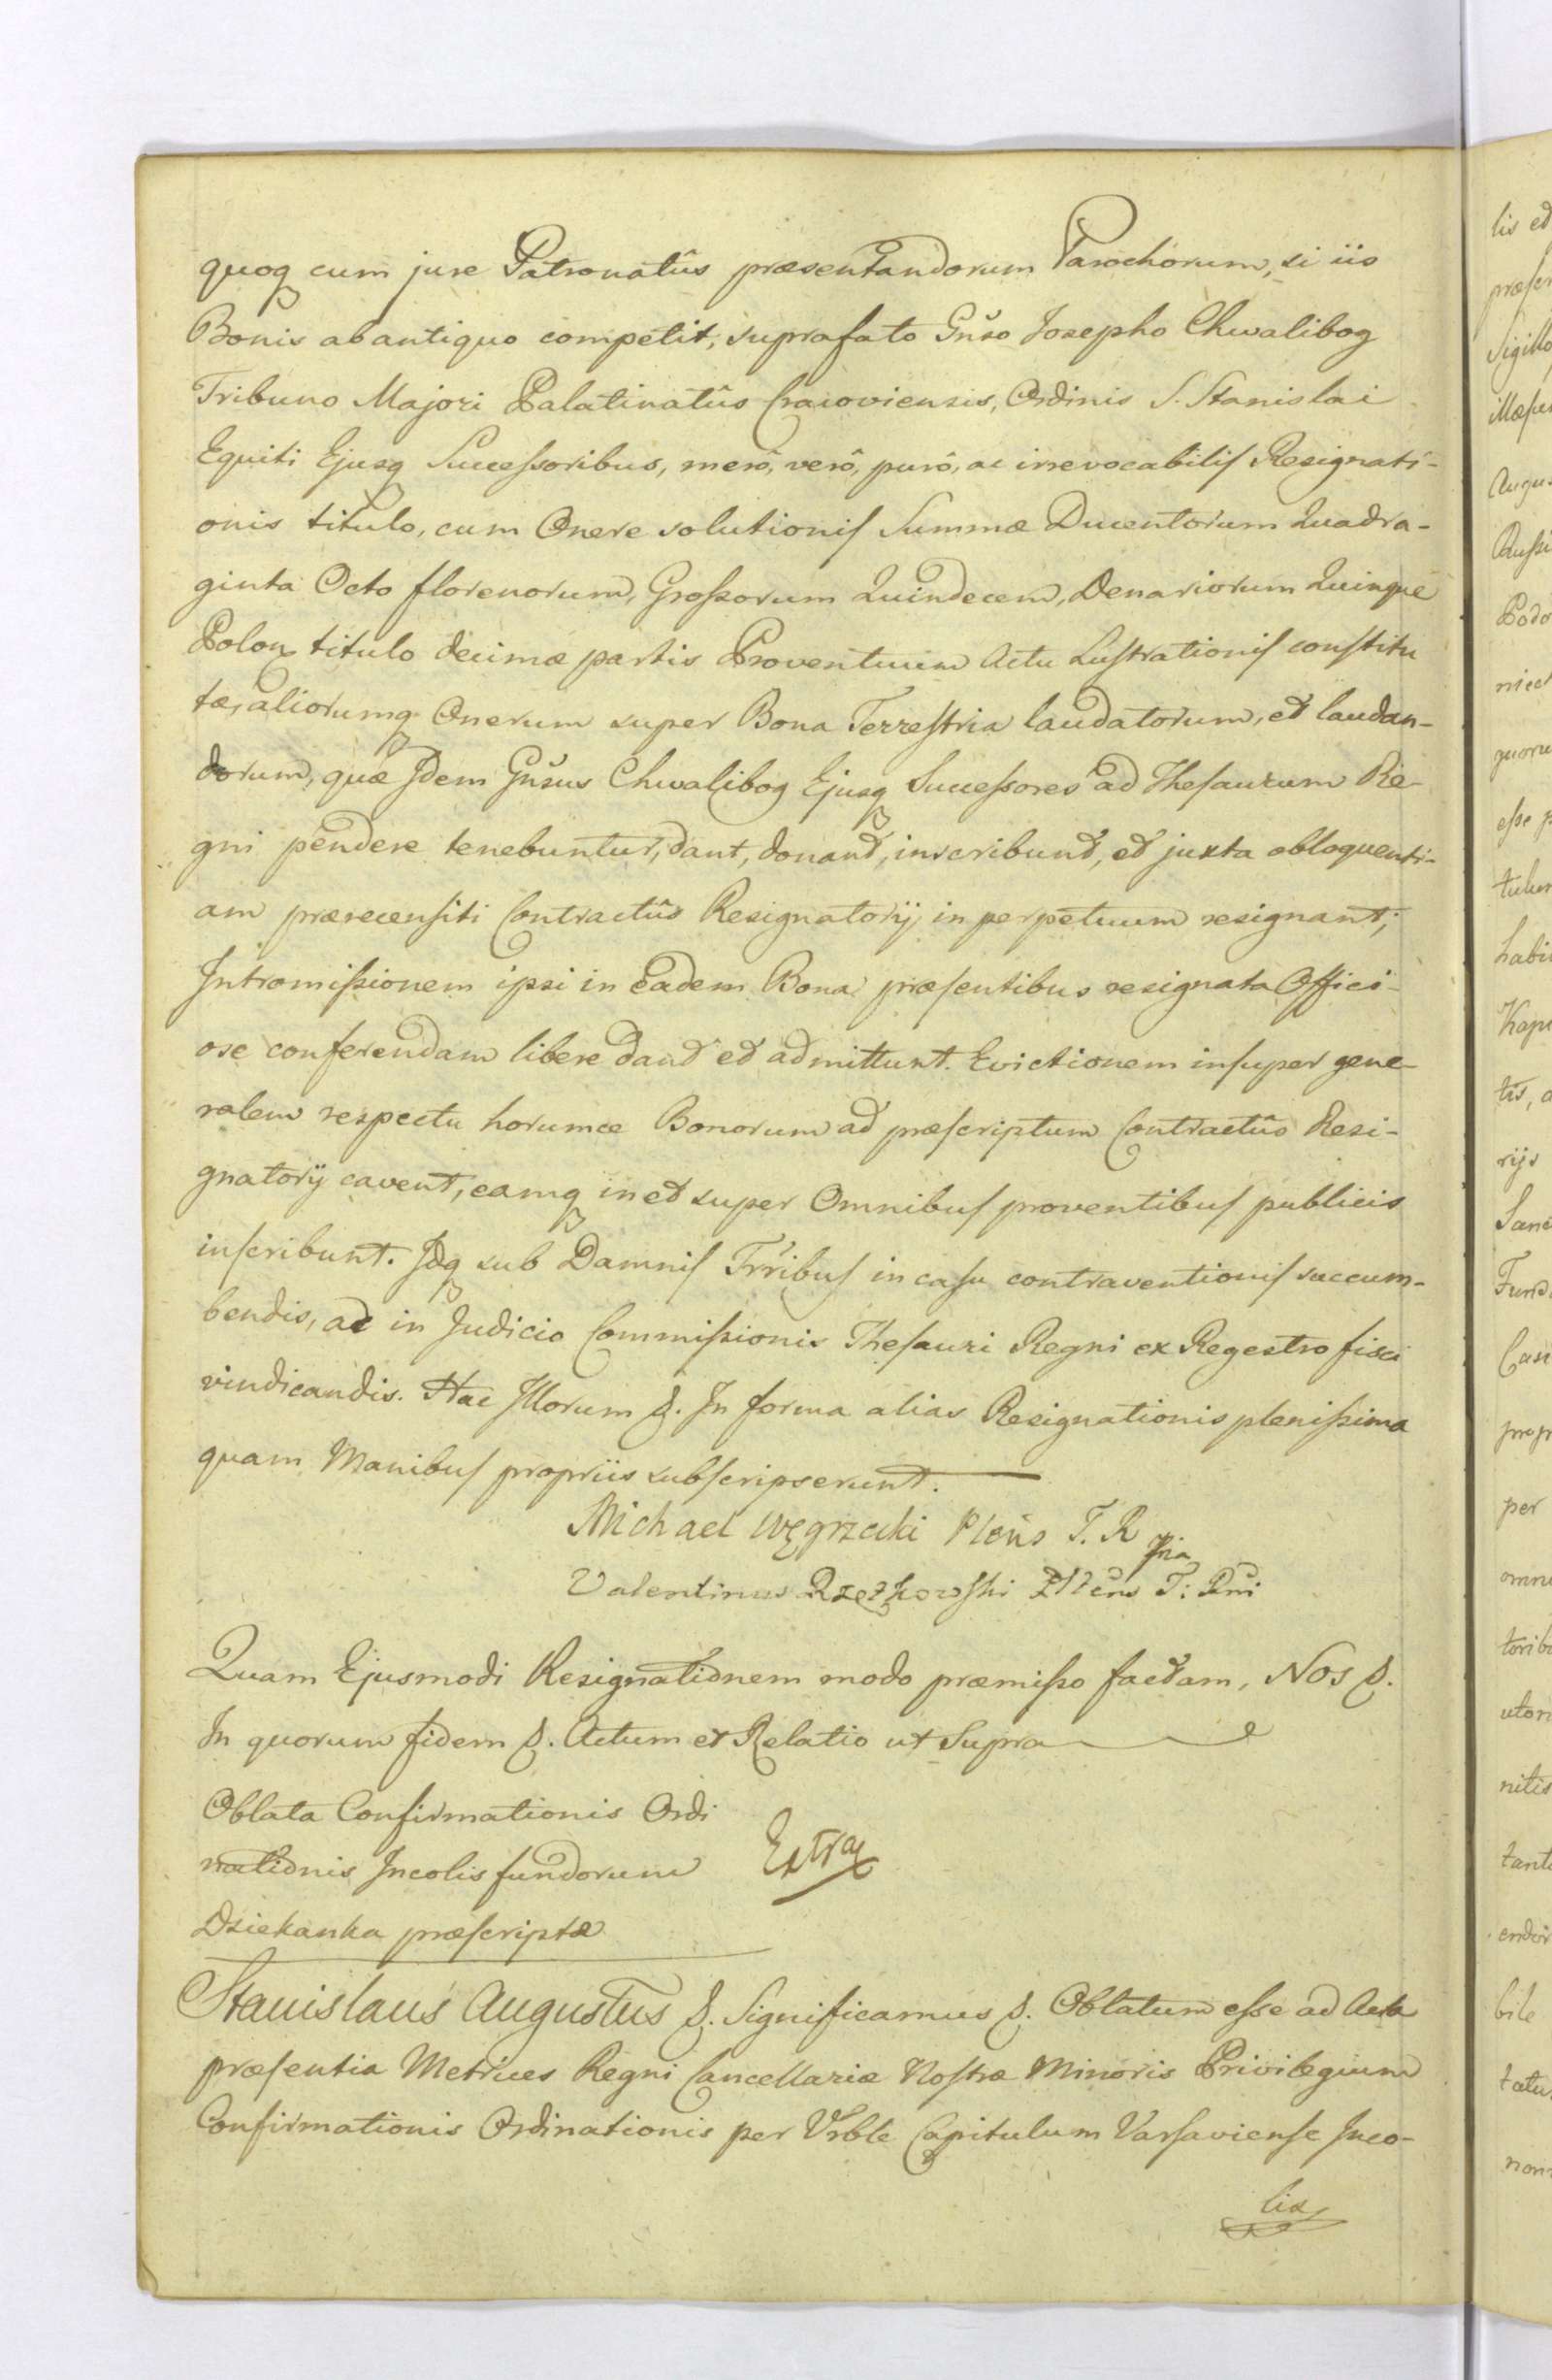 quoq cum jure Patronatûs præsentandorum Parochorum, si iis
Bonis ab antiquo competit, suprafato Gñso Josepho Chwalibog
Tribuno Majori Palatinatûs Cracoviensis, Ordinis S. Stanislai
Equiti Ejusq Successoribus, merô, verô, purô, ac irrevocabilis Resignati-
onis titulo, cum Onere solutionis Summæ Ducentorum Quadra-
ginta Octo florenorum, Grossorum Quindecem, Denariorum Quinque
Polon titulo decimæ partis Proventuum Actu Lustrationis constitu
tæ, aliorumq Onerum super Bona Terrestria laudatorum, et laudan-
dorum, quæ Idem Gñsus Chwalibog Ejusq Successores ad Thesaurum Re-
gni pendere tenebuntur, dant, donant, inscribunt, et juxta obloquenti-
am prærecensiti Contractûs Resignatorij in perpetuum resignant;
Intromissionem ipsi in Eadem Bona præsentibus resignata Offici-
ose conferendam libere dant et admittunt. Evictionem insuper gene-
ralem respectu horumce Bonorum ad præscriptum Contractûs Resi-
gnatorij cavent, eamq in et super Omnibus proventibus publicis
inscribunt. Idq sub Damnis Trribus in casu contraventionis succum-
bendis, ac in Judicio Commissionis Thesauri Regni ex Regestro fisci
vindicandis. Hac Illorum &. In forma alias Resignationis plenissima
quam Manibus propriis subscripserunt.
Michael Węgrzecki Pleñs T. R
Valentinus Rzętkowski Pleñs T: Rñi
Quam Ejusmodi Resignationem modo præmisso factam, Nos &.
In quorum fidem &. Actum et Relatio ut Supra
Oblata Confirmationis Ordi
nationis Incolis fundorum Extra
Dziekanka præscriptæ
Stanislaus Augustus &. Significamus &. Oblatum esse ad Acta
præsentia Metrices Regni Cancellariæ Nostræ Minoris Privilegium
Confirmationis Ordinationis per Vrble Capitulum Varsaviense Inco-
lis